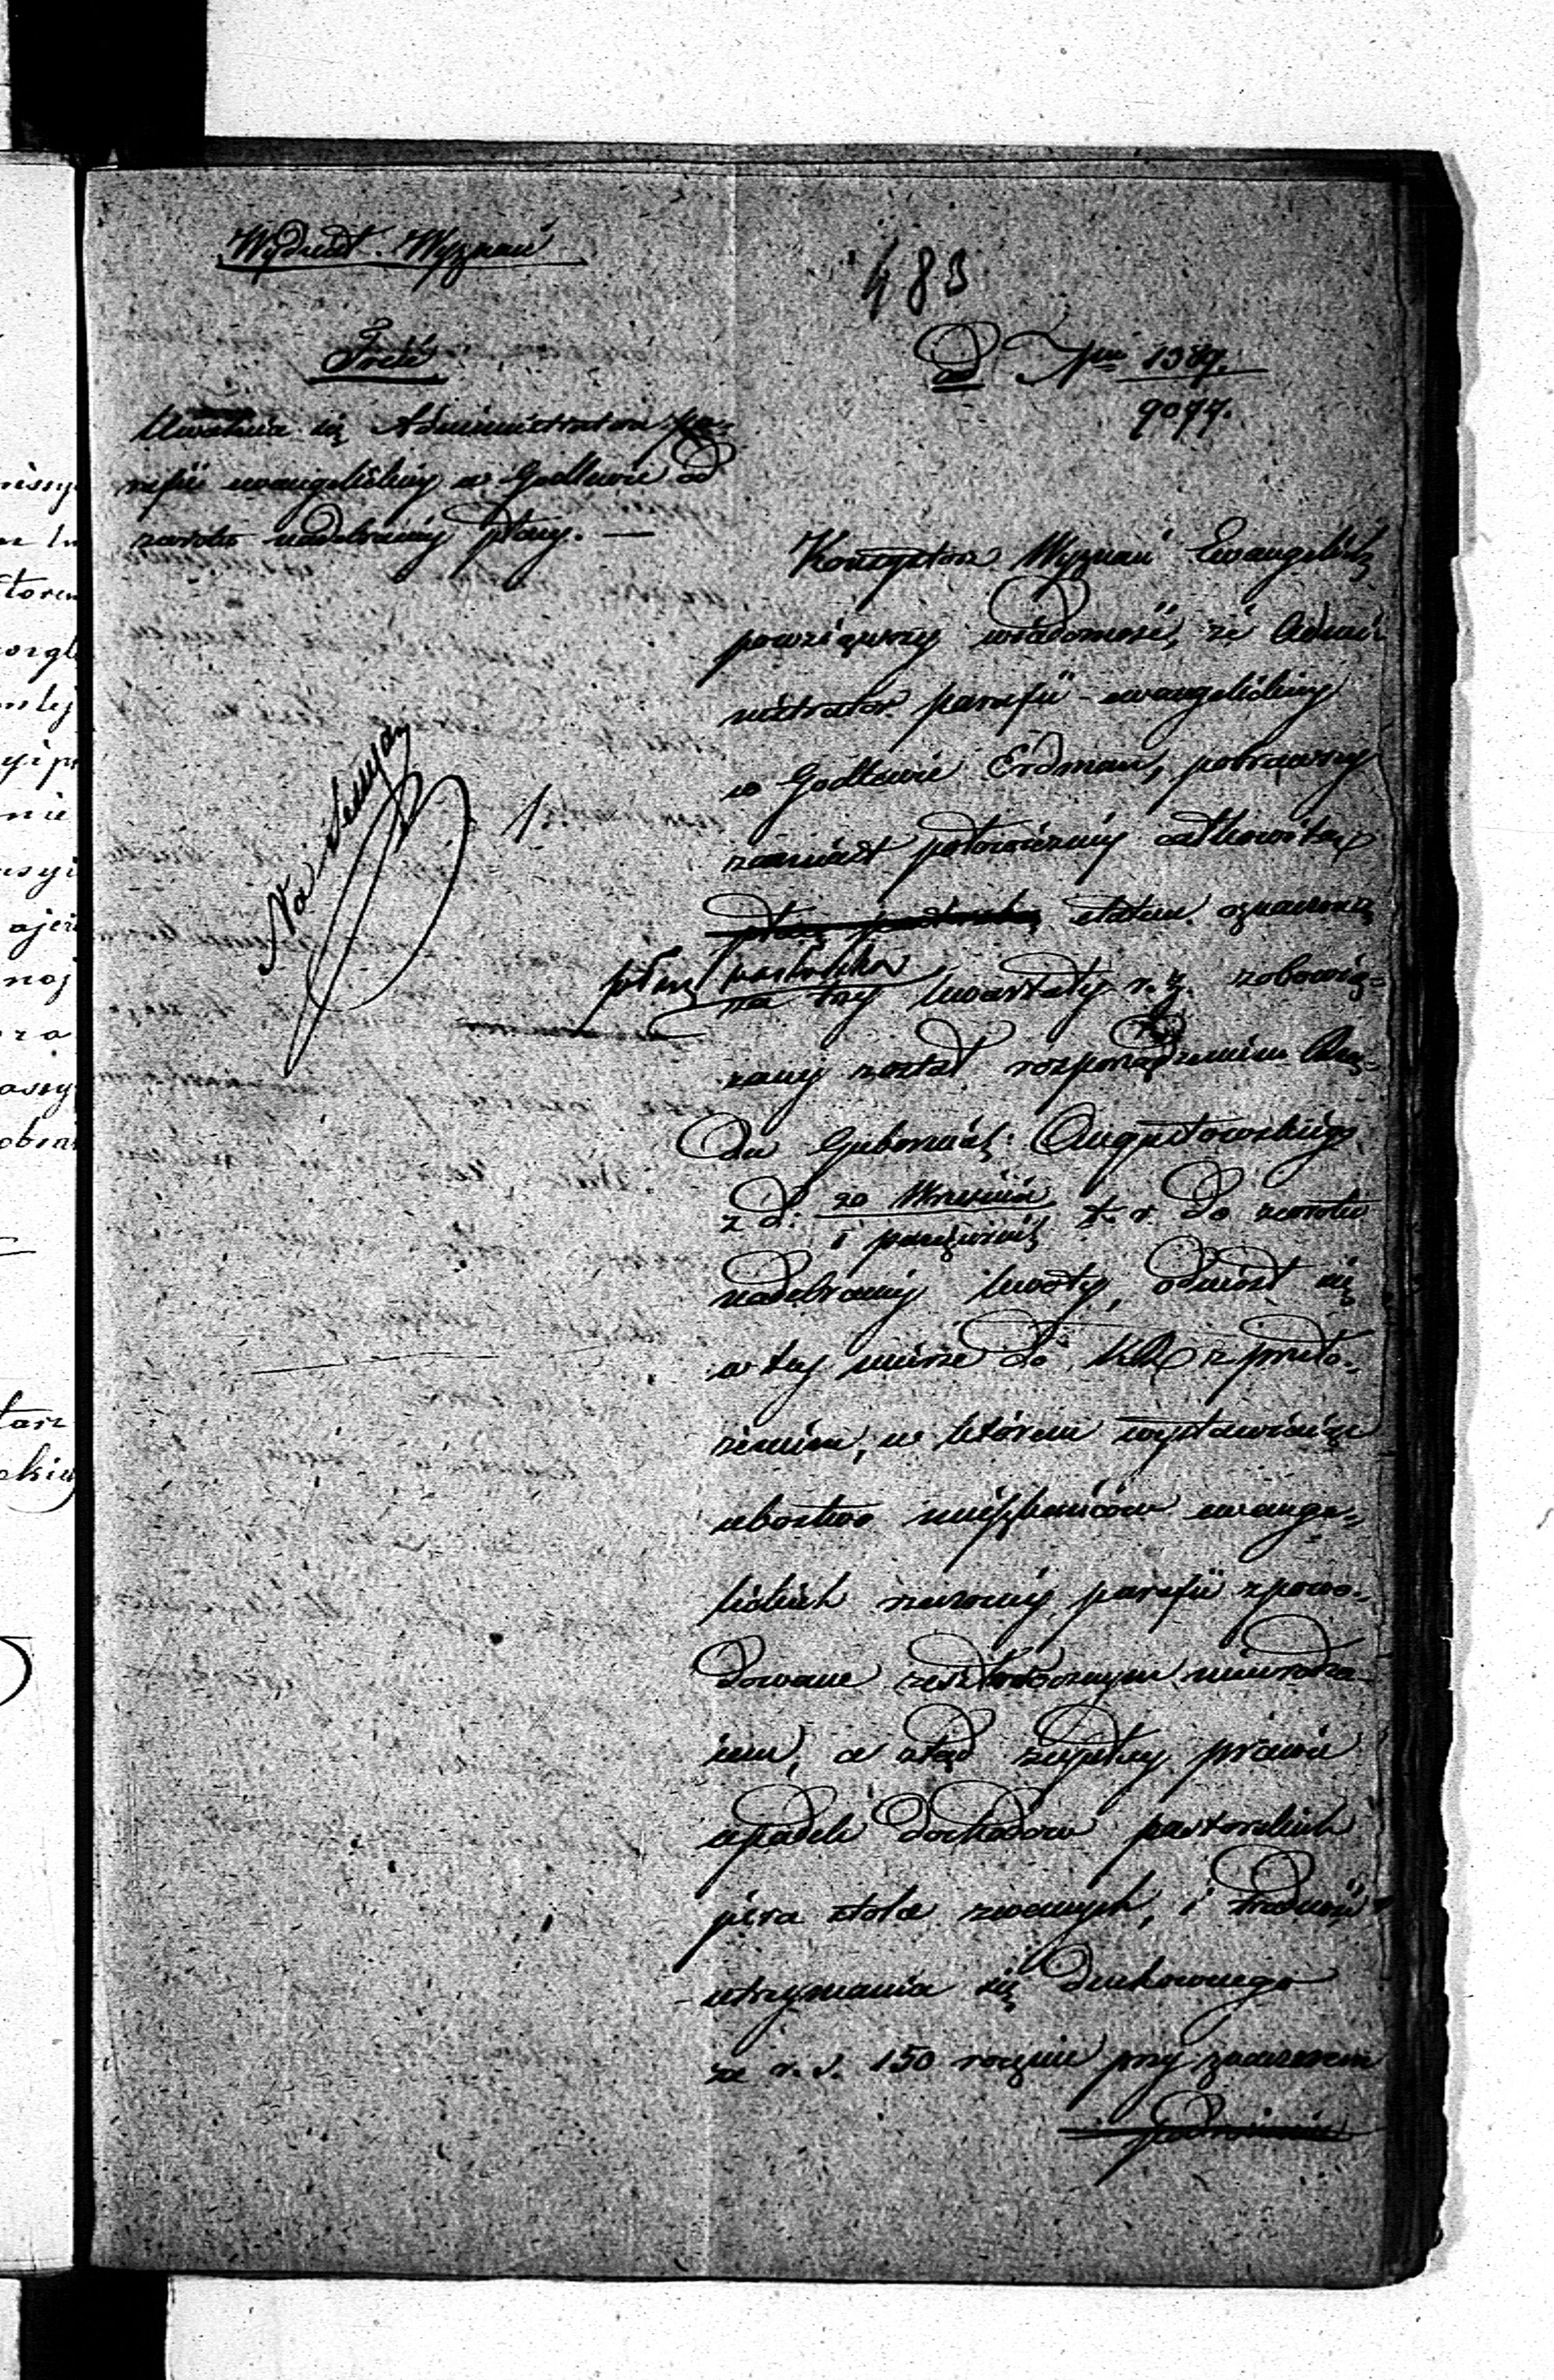 Wydział Wyznań
483
Treść
ad Nrm 1387.
9077.
Uwolnia się Administratora pa-
rafii ewangelickiey w Godlewie od
zwrotu nadebraney płacy. —
Na Sessyą
Konsystorz Wyznań Ewangelick:
powziąwszy wiadomość, że Admi-
nistrator parafii ewangelickiey
w Godlewie Erdman, pobrawszy
zamiast połowiczney całkowitą
etatem oznaczoną
płacę pastorską
na trzy kwartały r. z. zobowią-
zany został rozporządzeniem Rzą-
du Gubernial: Augustowskiego
z d: 20 Września
1 Października t. r. do zwrotu
nadebraney kwoty, odniósł się
w tey mierze do KR z przeło-
żeniem, w którem wystawiając
ubostwo mieszkańców ewange-
lickich rzeczoney parafii spowo-
dowane zeszłorocznym nieurodza-
jem, a ztąd zupełny prawie
upadek dochodów pastorskich
jura stolae zwanych, i trudność
utrzymania się Duchownego
ze r. s. 150 rocznie przy